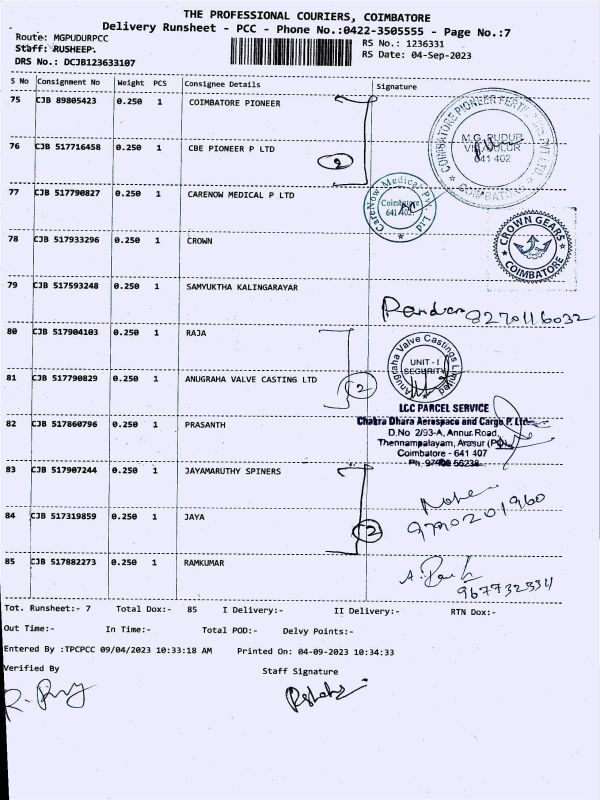 THE PROFESSIONAL COURIERS, COIMBATORE
Delivery Runsheet - PCC - Phone No.:0422-3505555 - Page No.:7
Route: MGPUDURPCC
RS No.: 1236331
Staff: RUSHEEP.
RS Date: 04-Sep-2023
DRS No.: DCJB123633107
S No Consignment No Weight PCS Consignee Details Signature
75 CJB 89805423 0.250 1 COIMBATORE PIONEER
76 CJB 517716458 0.250 1 CBE PIONEER P LTD
2
COIMBATORE PIONEER FERTILIZERS PVT LTD
COIMBATORE
M.G. PUDUR
641 402
77 CJB 517790827 0.250 1 CARENOW MEDICAL P LTD
CareNow Medical Pvt. Ltd
Coimbatore
641 402.
78 CJB 517933296 0.250 1 CROWN
CROWN GEARS
COIMBATORE
79 CJB 517593248 0.250 1 SAMYUKTHA KALINGARAYAR
9270116032
80 CJB 517904103 0.250 1 RAJA
81 CJB 517790829 0.250 1 ANUGRAHA VALVE CASTING LTD
2
Anugraha Valve Castings Limited
UNIT - I
SECURITY
82 CJB 517860796 0.250 1 PRASANTH
LCC PARCEL SERVICE
Chakra Dhara Aerospace and Cargo P. Ltd.
D.No 2/93-A, Annur Road,
Thennampalayam, Arasur (PO),
Coimbatore - 641 407
83 CJB 517907244 0.250 1 JAYAMARUTHY SPINERS
84 CJB 517319859 0.250 1 JAYA
2
9790201960
85 CJB 517882273 0.250 1 RAMKUMAR
Tot. Runsheet:- 7 Total Dox:- 85 I Delivery:- II Delivery:- RTN Dox:-
Out Time:- In Time:- Total POD:- Delvy Points:-
Entered By :TPCPCC 09/04/2023 10:33:18 AM Printed On: 04-09-2023 10:34:33
Verified By Staff Signature